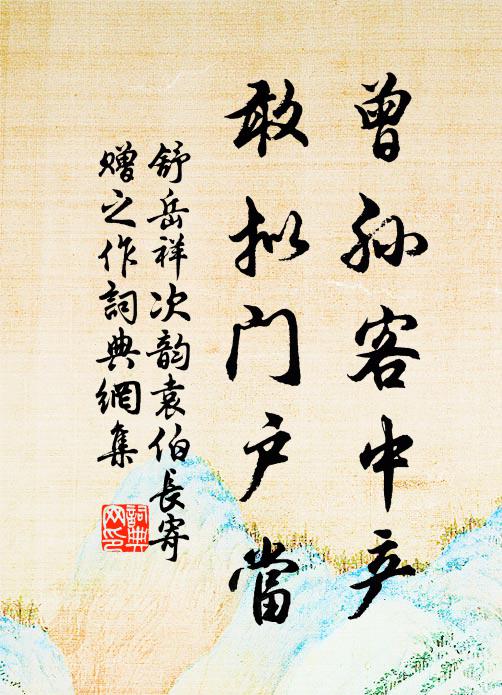 曾孙客中产
敢拟门户當
舒岳祥次韵袁伯長寄
赠之作詞典網集
詞典
网印